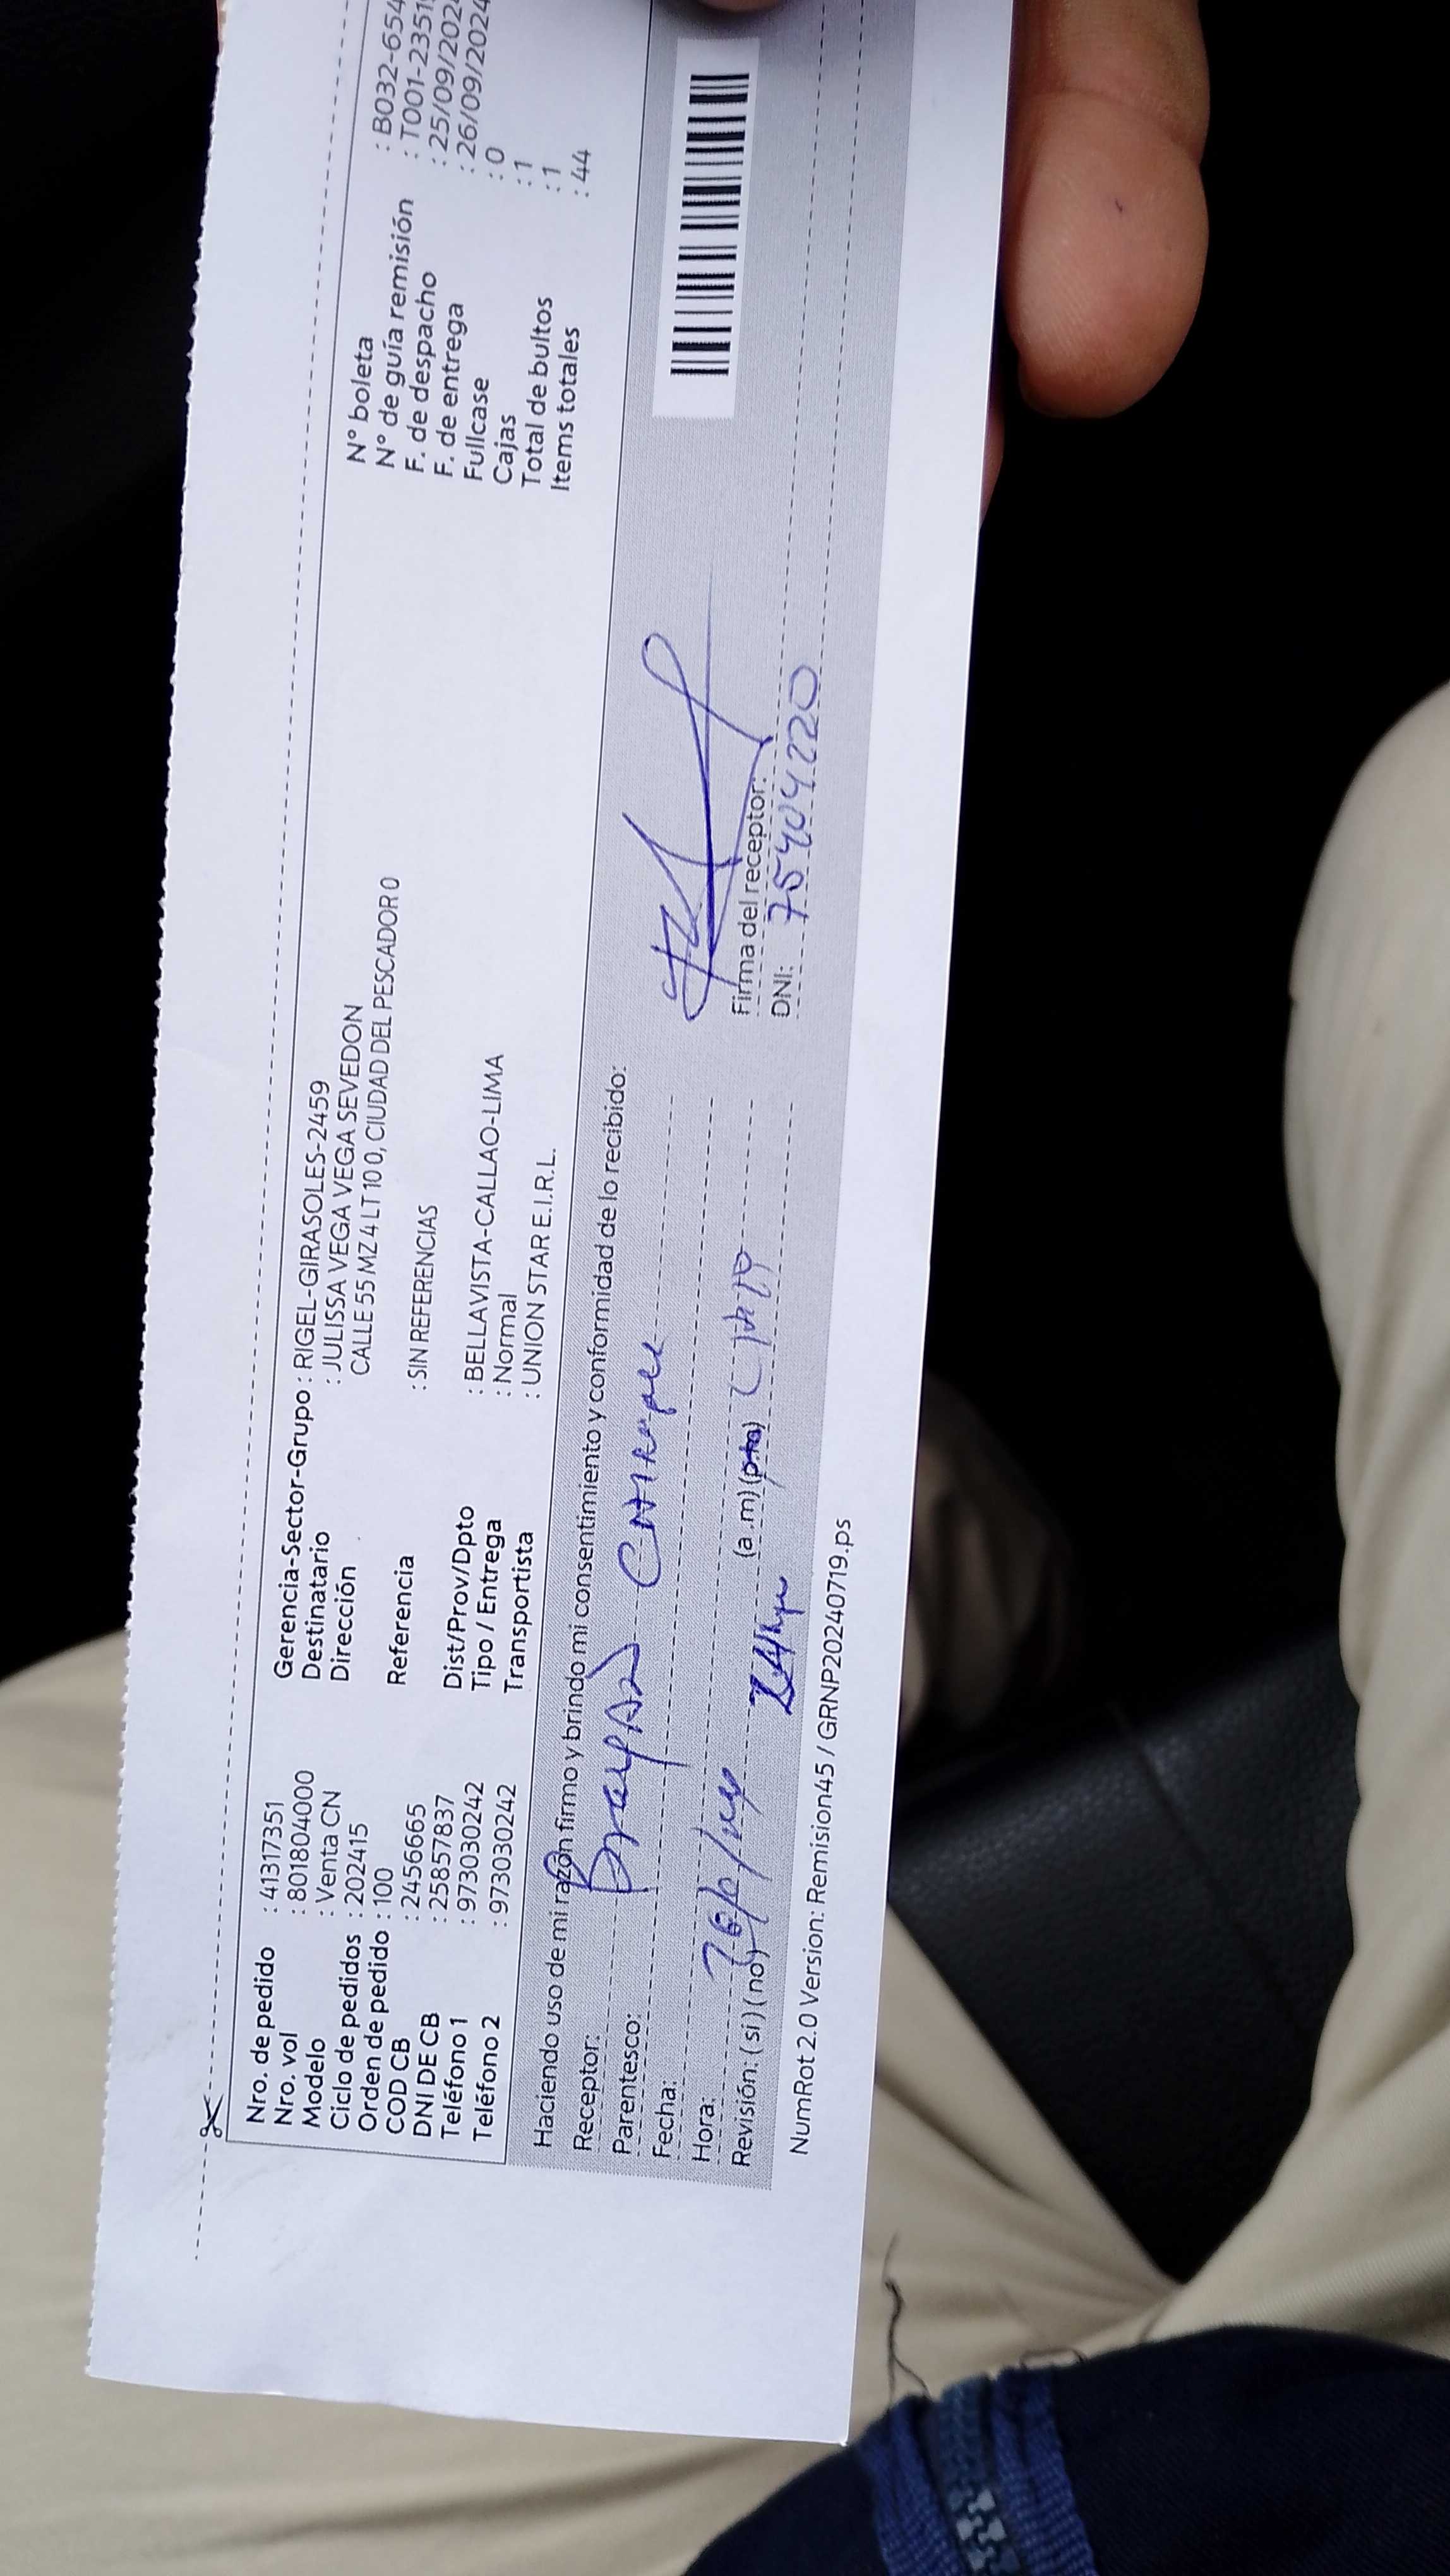 Nro. de pedido : 41317351
Nro. vol : 801804000
Modelo : Venta CN
Ciclo de pedidos : 202415
Orden de pedido : 100
COD CB : 2456665
DNI DE CB : 25857837
Teléfono 1 : 973030242
Teléfono 2 : 973030242
Gerencia-Sector-Grupo : RIGEL-GIRASOLES-2459
Destinatario : JULISSA VEGA VEGA SEVEDON
Dirección CALLE 55 MZ 4 LT 10 0, CIUDAD DEL PESCADOR 0
Referencia : SIN REFERENCIAS
Dist/Prov/Dpto : BELLAVISTA-CALLAO-LIMA
Tipo / Entrega : Normal
Transportista : UNION STAR E.I.R.L.
N° boleta : B032-654
N° de guía remisión : T001-2351
F. de despacho : 25/09/202
F. de entrega : 26/09/2024
Fullcase : 0
Cajas : 1
Total de bultos : 1
Items totales : 44
Haciendo uso de mi razón firmo y brindo mi consentimiento y conformidad de lo recibido:
Receptor:
Parentesco:
Fecha:
Hora: (a .m) (p.m)
Revisión: ( si ) ( no )
Firma del receptor:
DNI: 75404220
NumRot 2.0 Version: Remision45 / GRNP20240719.ps